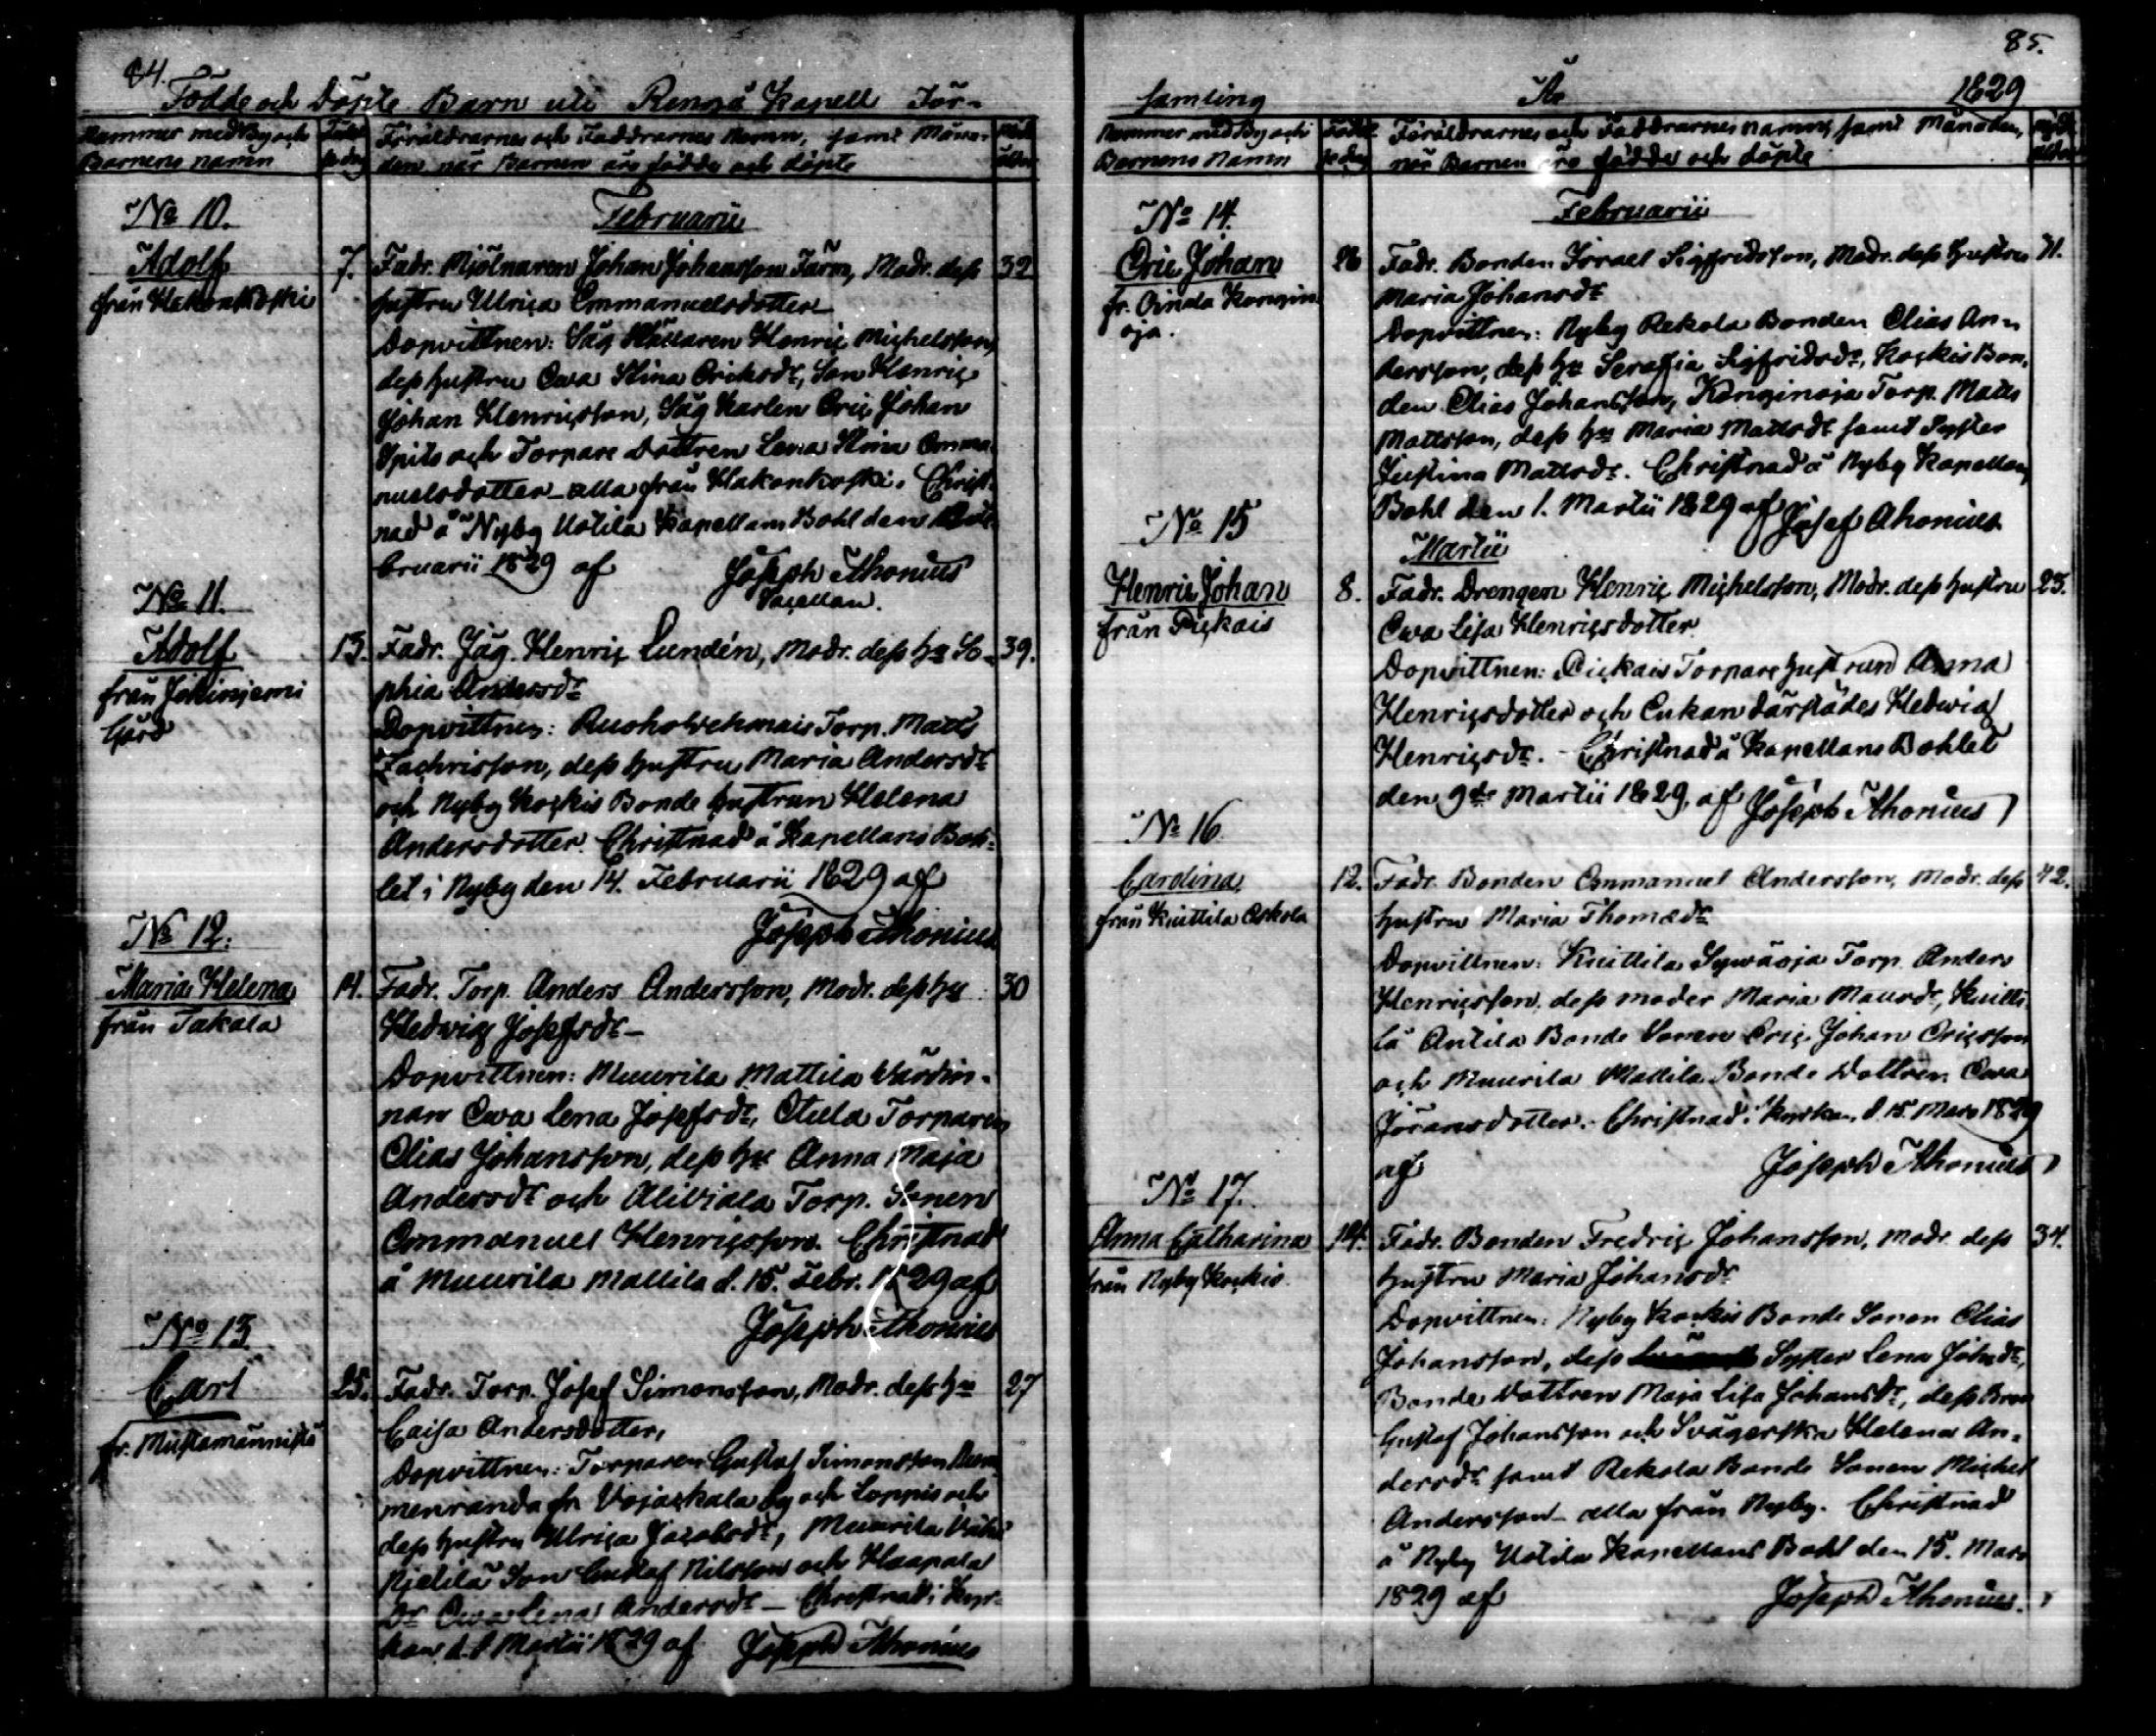 84.
Födde och Döpte Barn uti Rengå Kapell För-
Nummer med By och
Barnens namn
Födel
se dag
Föräldrarnes och Faddrarnes Namn, samt Måna-
den när Barnen äro födde och döpte
No 10.
Februarii
Adolf
7.
Fadr. Mjölnaren Johan Johansson Färm, Modr. dess
32
från Hakonkoski
hustru Ulrica Emmanuelsdotter
Dopvittnen: Såg Ställaren Henric Michelsson,
dess hustru Ewa Stina Eriksdr, Son Henric
Johan Henricsson, Såg Karlen Eric Johan
Spits och Torpare Dottren Lena Stina Emma
nuelsdotter – alla från Hakonkoski. Christ-
nad å Nyby Uotila Kapellans Bohl den
bruarii 1829 af Joseph Ahonius
Sacellan.
No 11.
Adolf
13.
Fadr. Jäg. Henric Lundén, Modr. dess hu So-
39.
från Jokinjemi
Gård
phia Andersdr
Dopvittnen: Ruoholvehmais Torp. Matts
Zachrisson, dess hustru Maria Andersdr
och Nyby Kockis Bonde hustrun Helena
Andersdotter. Christnad å Kapellans Boh-
let i Nyby den 14. Februarii 1829 af
Joseph Ahonius
No 12.
Maria Helena
14.
Fadr. Torp. Anders Andersson, Modr. dess hu
30
från Takala
Hedwig Josefsdr –
Dopvittnen: Muurila Mattila Värdin-
nan Ewa Lena Josefsdr, Torparen
Elias Johansson, dess hu Anna Maja
Andersdr och Torp. Sonen
Emmanuel Henricsson. Christnad
å Muurila Mattila d. 15. Febr. 1829 af
Joseph Ahonius
No 13
Carl
25.
Fadr. Torp. Josef Simonsson, Modr. dess hu
27
fr. Mustamännistö
Caisa Andersdotter,
Dopvittnen: Torparen Gustaf Simonsson
menranda fr. Vojaskala by och Loppis och
dess hustru Ulrica Jacobsdr, Muurila
Son Gustaf Nilsson och Haapala
Dr Ewa Lena Andersdr – Christnad i Kyr-
kan d. 1 Martii 1829 af Joseph Ahonius
85.
samling År 1829
Nummer med By och
Barnens Namn
Födel
se dag
Föräldrarnes och Faddrarnes namn, samt Månaden,
när Barnen äro födde och döpte
No 14.
Februarii
Eric Johan
26
Fadr. Bonden Israel Sigfridsson, Modr. dess hustru
31.
fr. Oinila Kongin
oja.
Maria Johansdr
Dopvittnen: Nyby Rekola Bonden Elias An-
dersson, dess hu Serafia Sigfridsdr, Kockis Bon-
den Elias Johansson, Konginoja Torp. Matts
Mattsson, dess hu Maria Mattsdr samt Syster
Justina Mattsdr. Christnad å Nyby Kapellans
Bohl den 1. Martii 1829 af Josef Ahonius
No 15
Martii
Henric Johan
8.
Fadr. Drengen Henric Michelsson, Modr. dess hustru
23.
från Pickais
Ewa Lisa Henricsdotter.
Dopvittnen: Pickais Torpare hustrun Anna
Henricsdotter och Enkan därstädes Hedwig
Henricsdr. – Christnad å Kapellans Bohlet
den 9de Martii 1829. af Joseph Ahonius
No 16.
Carolina
12.
Fadr. Bonden Emmanuel Andersson, Modr. dess
42.
från Kuittila Eskola
hustru Maria Thomædr
Dopvittnen: Kuittila Sywäoja Torp. Anders
Henricsson, dess moder Maria Maursdr, Kuitti
la Antila Bonde Sonen Eric Johan Ericsson
och Muurila Mattila Bonde Dottren Ewa
Jöransdotter. Christnad i Kyrkan d. 15. Mars 1829
af Joseph Ahonius
No 17.
Anna Catharina
14.
Fadr. Bonden Fredric Johansson, modr. dess
34.
från Nyby Kockis
hustru Maria Johansdr
Dopvittnen: Nyby Kockis Bonde Sonen Elias
Johansson, dess Syster Lena Johsdr,
Bonde Dottren Maja Lisa Johansdr, dess Bror
Gustaf Johansson och Svägerska Helena An-
dersdr samt Rekola Bonde Sonen Michel
Andersson – alla från Nyby. Christnad
å Nyby Uotila Kapellans Bohl den 15. Mars
1829 af Joseph Ahonius.